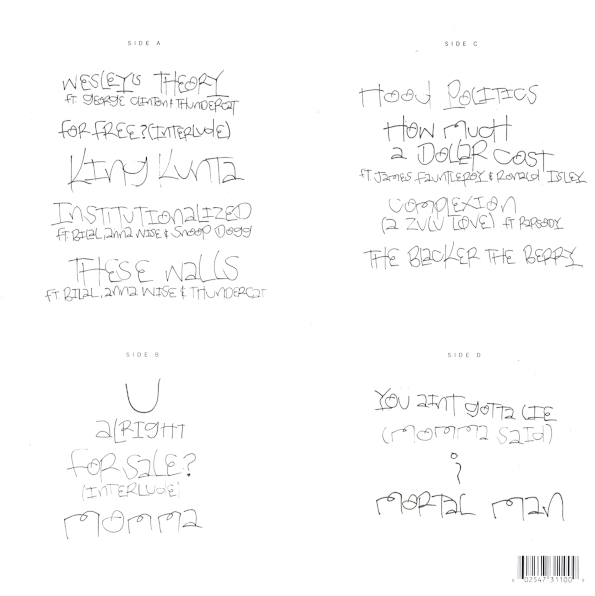 SIDE A
WESLEY'S THEORY
FT. GEORGE CLINTON & THUNDERCAT
FOR FREE? (INTERLUDE)
KING KUNTA
INSTITUTIONALIZED
FT BILAL, ANNA WISE & SNOOP DOGG
THESE WALLS
FT BILAL, ANNA WISE & THUNDERCAT
SIDE B
U
ALRIGHT
FOR SALE?
(INTERLUDE)
MOMMA
SIDE C
HOOD POLITICS
HOW MUCH
A DOLLAR COST
FT JAMES FAUNTLEROY & RONALD ISLEY
COMPLEXION
(A ZULU LOVE) FT RAPSODY
THE BLACKER THE BERRY
SIDE D
YOU AINT GOTTA LIE
(MOMMA SAID)
i
MORTAL MAN
6 02547 31100 9